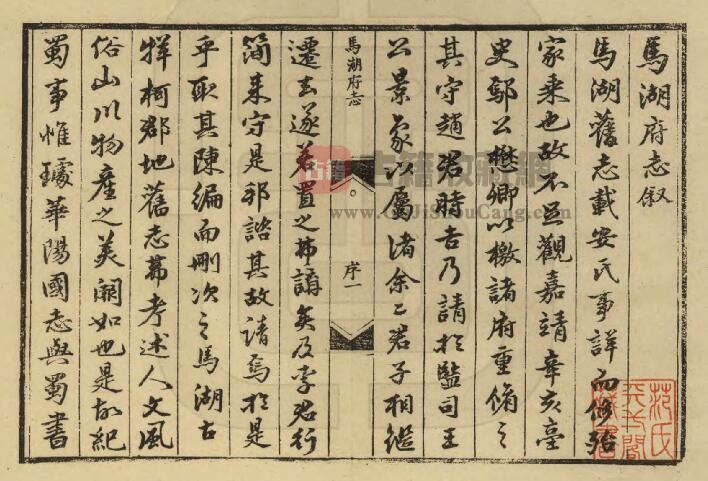 馬湖府志叙
馬湖舊志載安氏事詳而侈殆
家乘也故不足觀嘉靖辛亥臺
史鄢公懋卿以檄諸府重脩之
其守趙君時吉乃請於監司王
公景象以屬諸余二君子相繼
遷去遂若置之弗講矣及李君行
簡來守是邦諮其故請焉於是
乎取其陳編而刪次之馬湖古
牂柯郡地舊志弗考述人文風
俗山川物產之美闕如也是故紀
蜀事惟璩華陽國志與蜀書
馬湖府志
序一
古籍
古籍收藏網
www.GuJiShouCang.com
范氏
天一閣
藏書